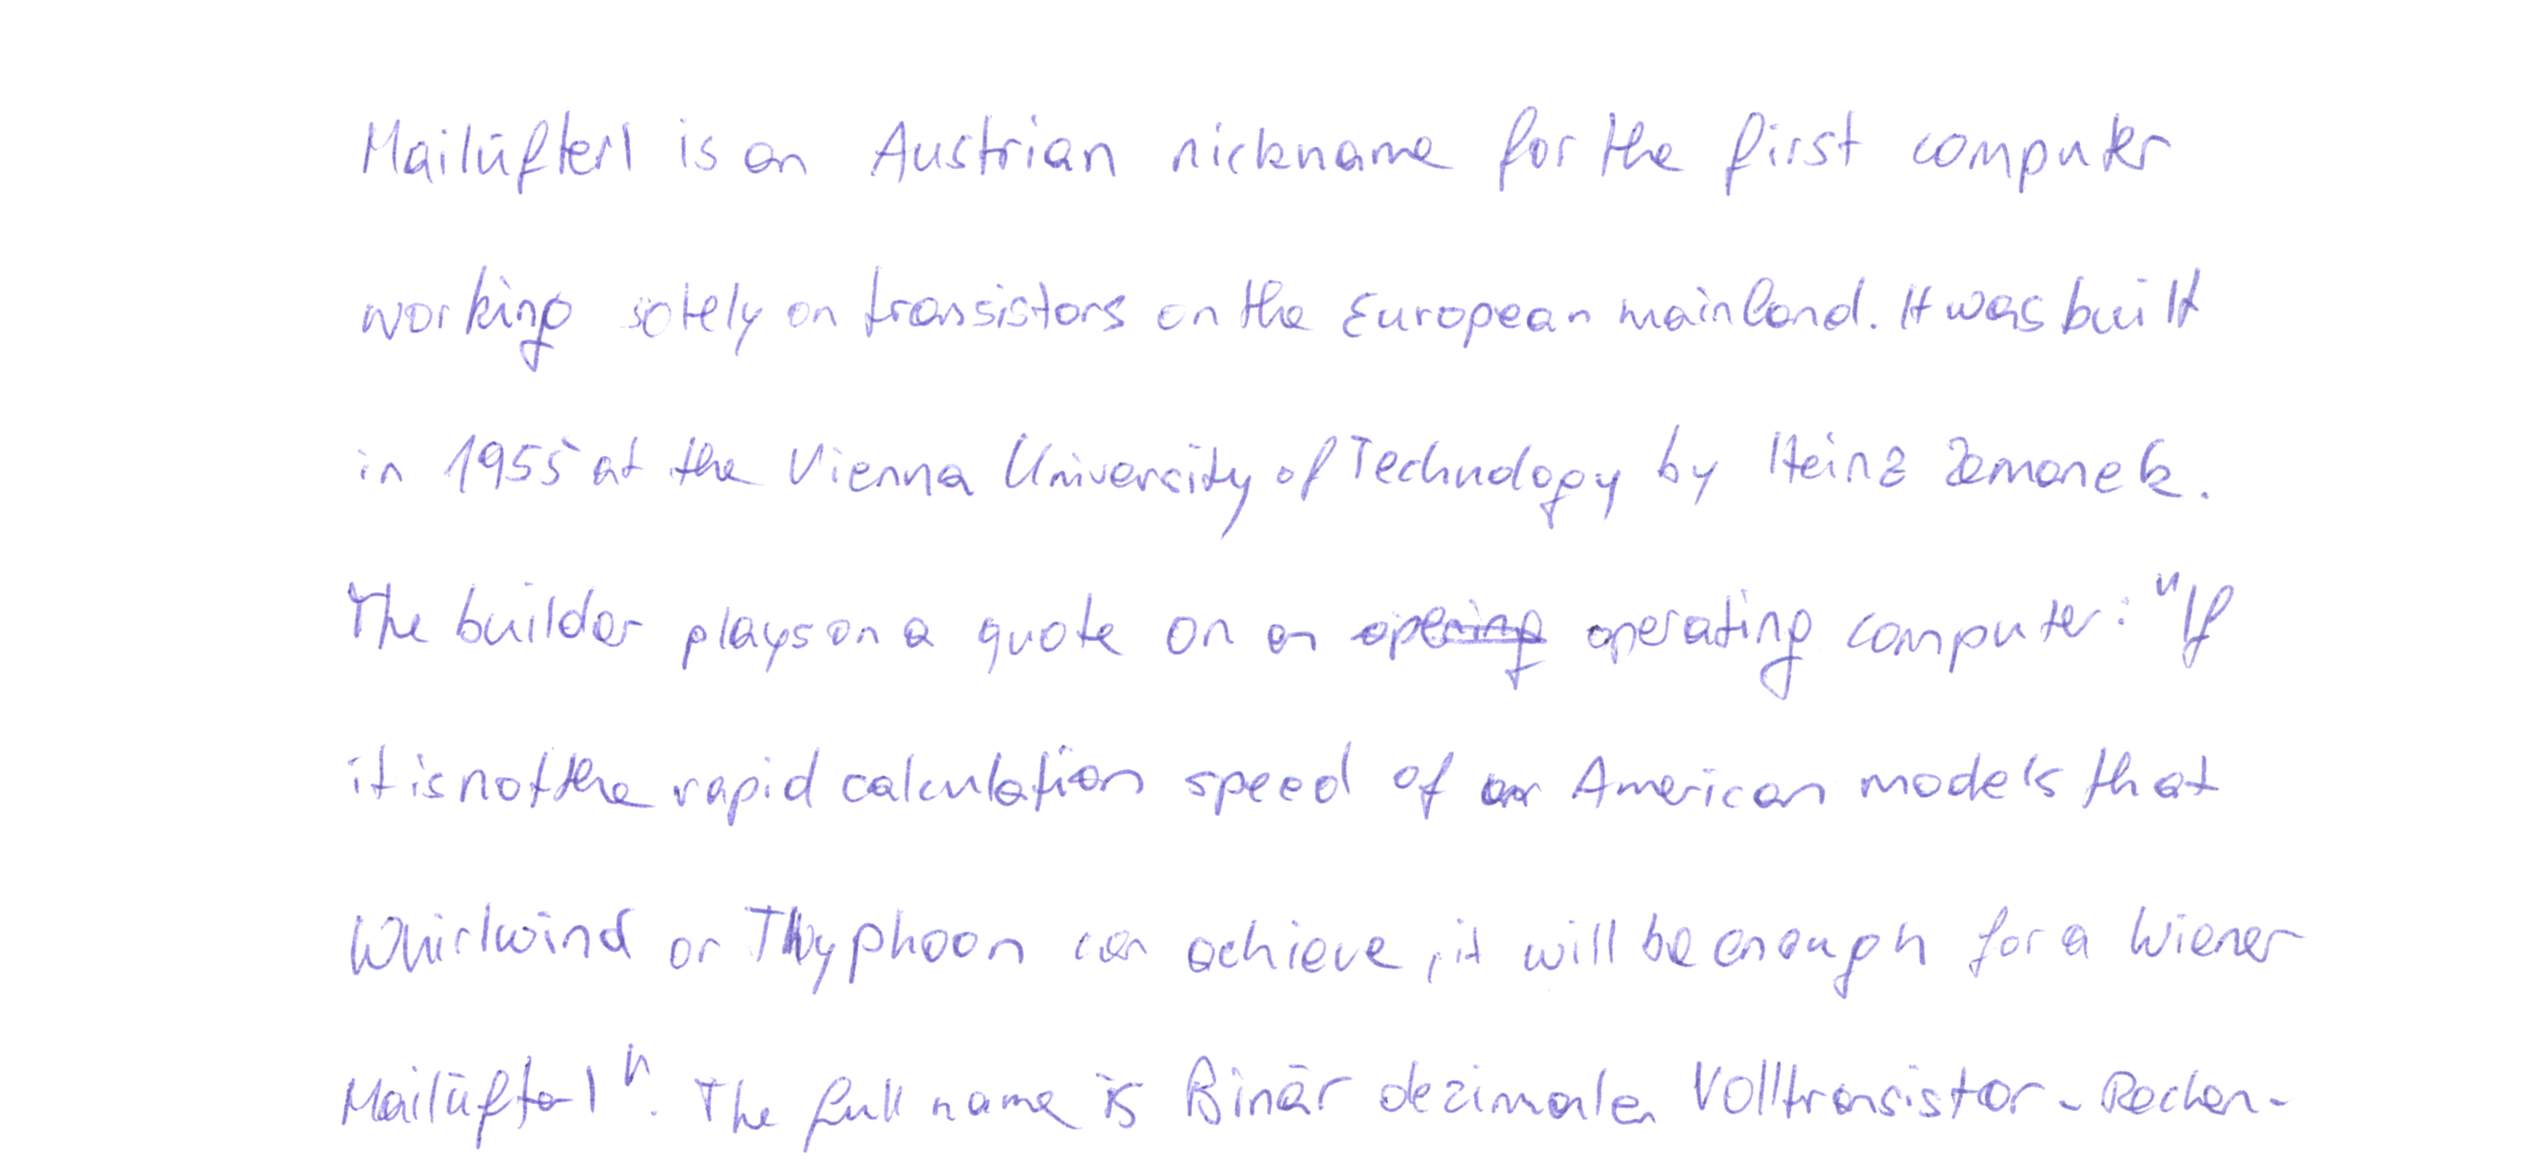 Mailüfterl is an Austrian nickname for the first computer
working solely on transistors on the European mainland. It was built
in 1955 at the Vienna University of Technology by Heinz Zemanek.
The builder plays on a quote on an opering operating computer: "If
it is not the rapid calculation speed of an American models that
Whirlwind or Thyphoon can achieve, it will be enough for a Wiener
Mailüfterl". The full name is Binär dezimaler Volltransistor-Rechen-